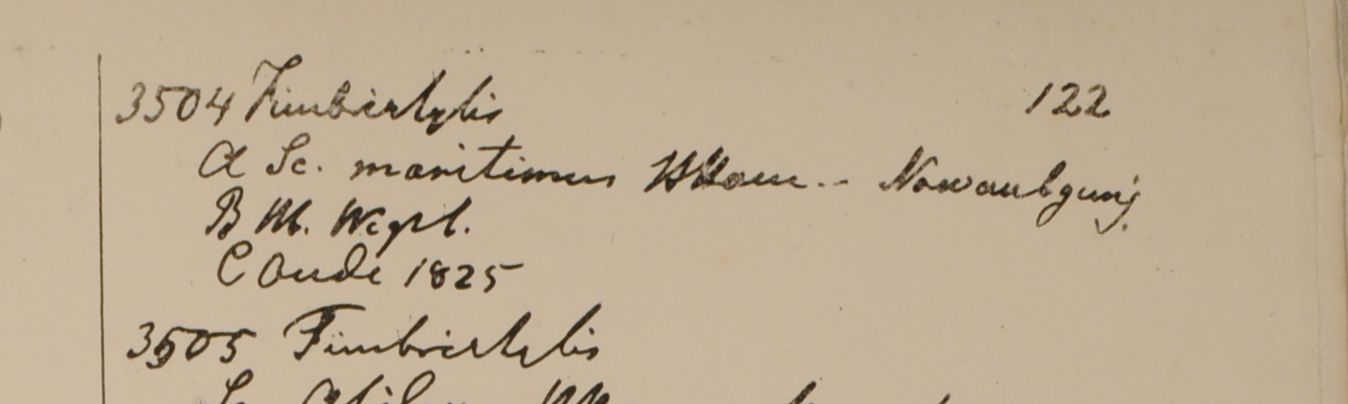 3504 Fimbristylis 122
A Sc. maritimus HHam. - Nowaubgunj.
B M. Wept.
C Oude 1825
3505 Fimbristylis
Sc.